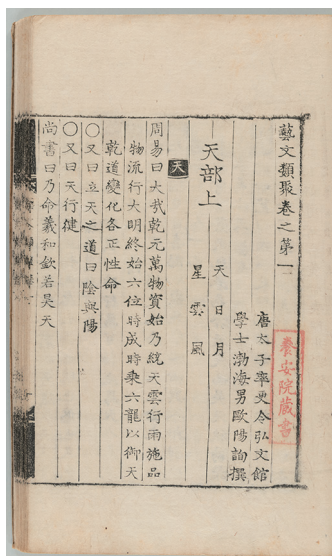 藝文類聚卷之第一
唐太子率更令弘文館
學士渤海男歐陽詢撰
天部上
天 日 月
星 雲 風
天
周易曰大哉乾元萬物資始乃統天雲行雨施品
物流行大明終始六位時成時乘六龍以御天
乾道變化各正性命
〇又曰立天之道曰陰與陽
〇又曰天行健
尚書曰乃命羲和欽若昊天
養安院藏書